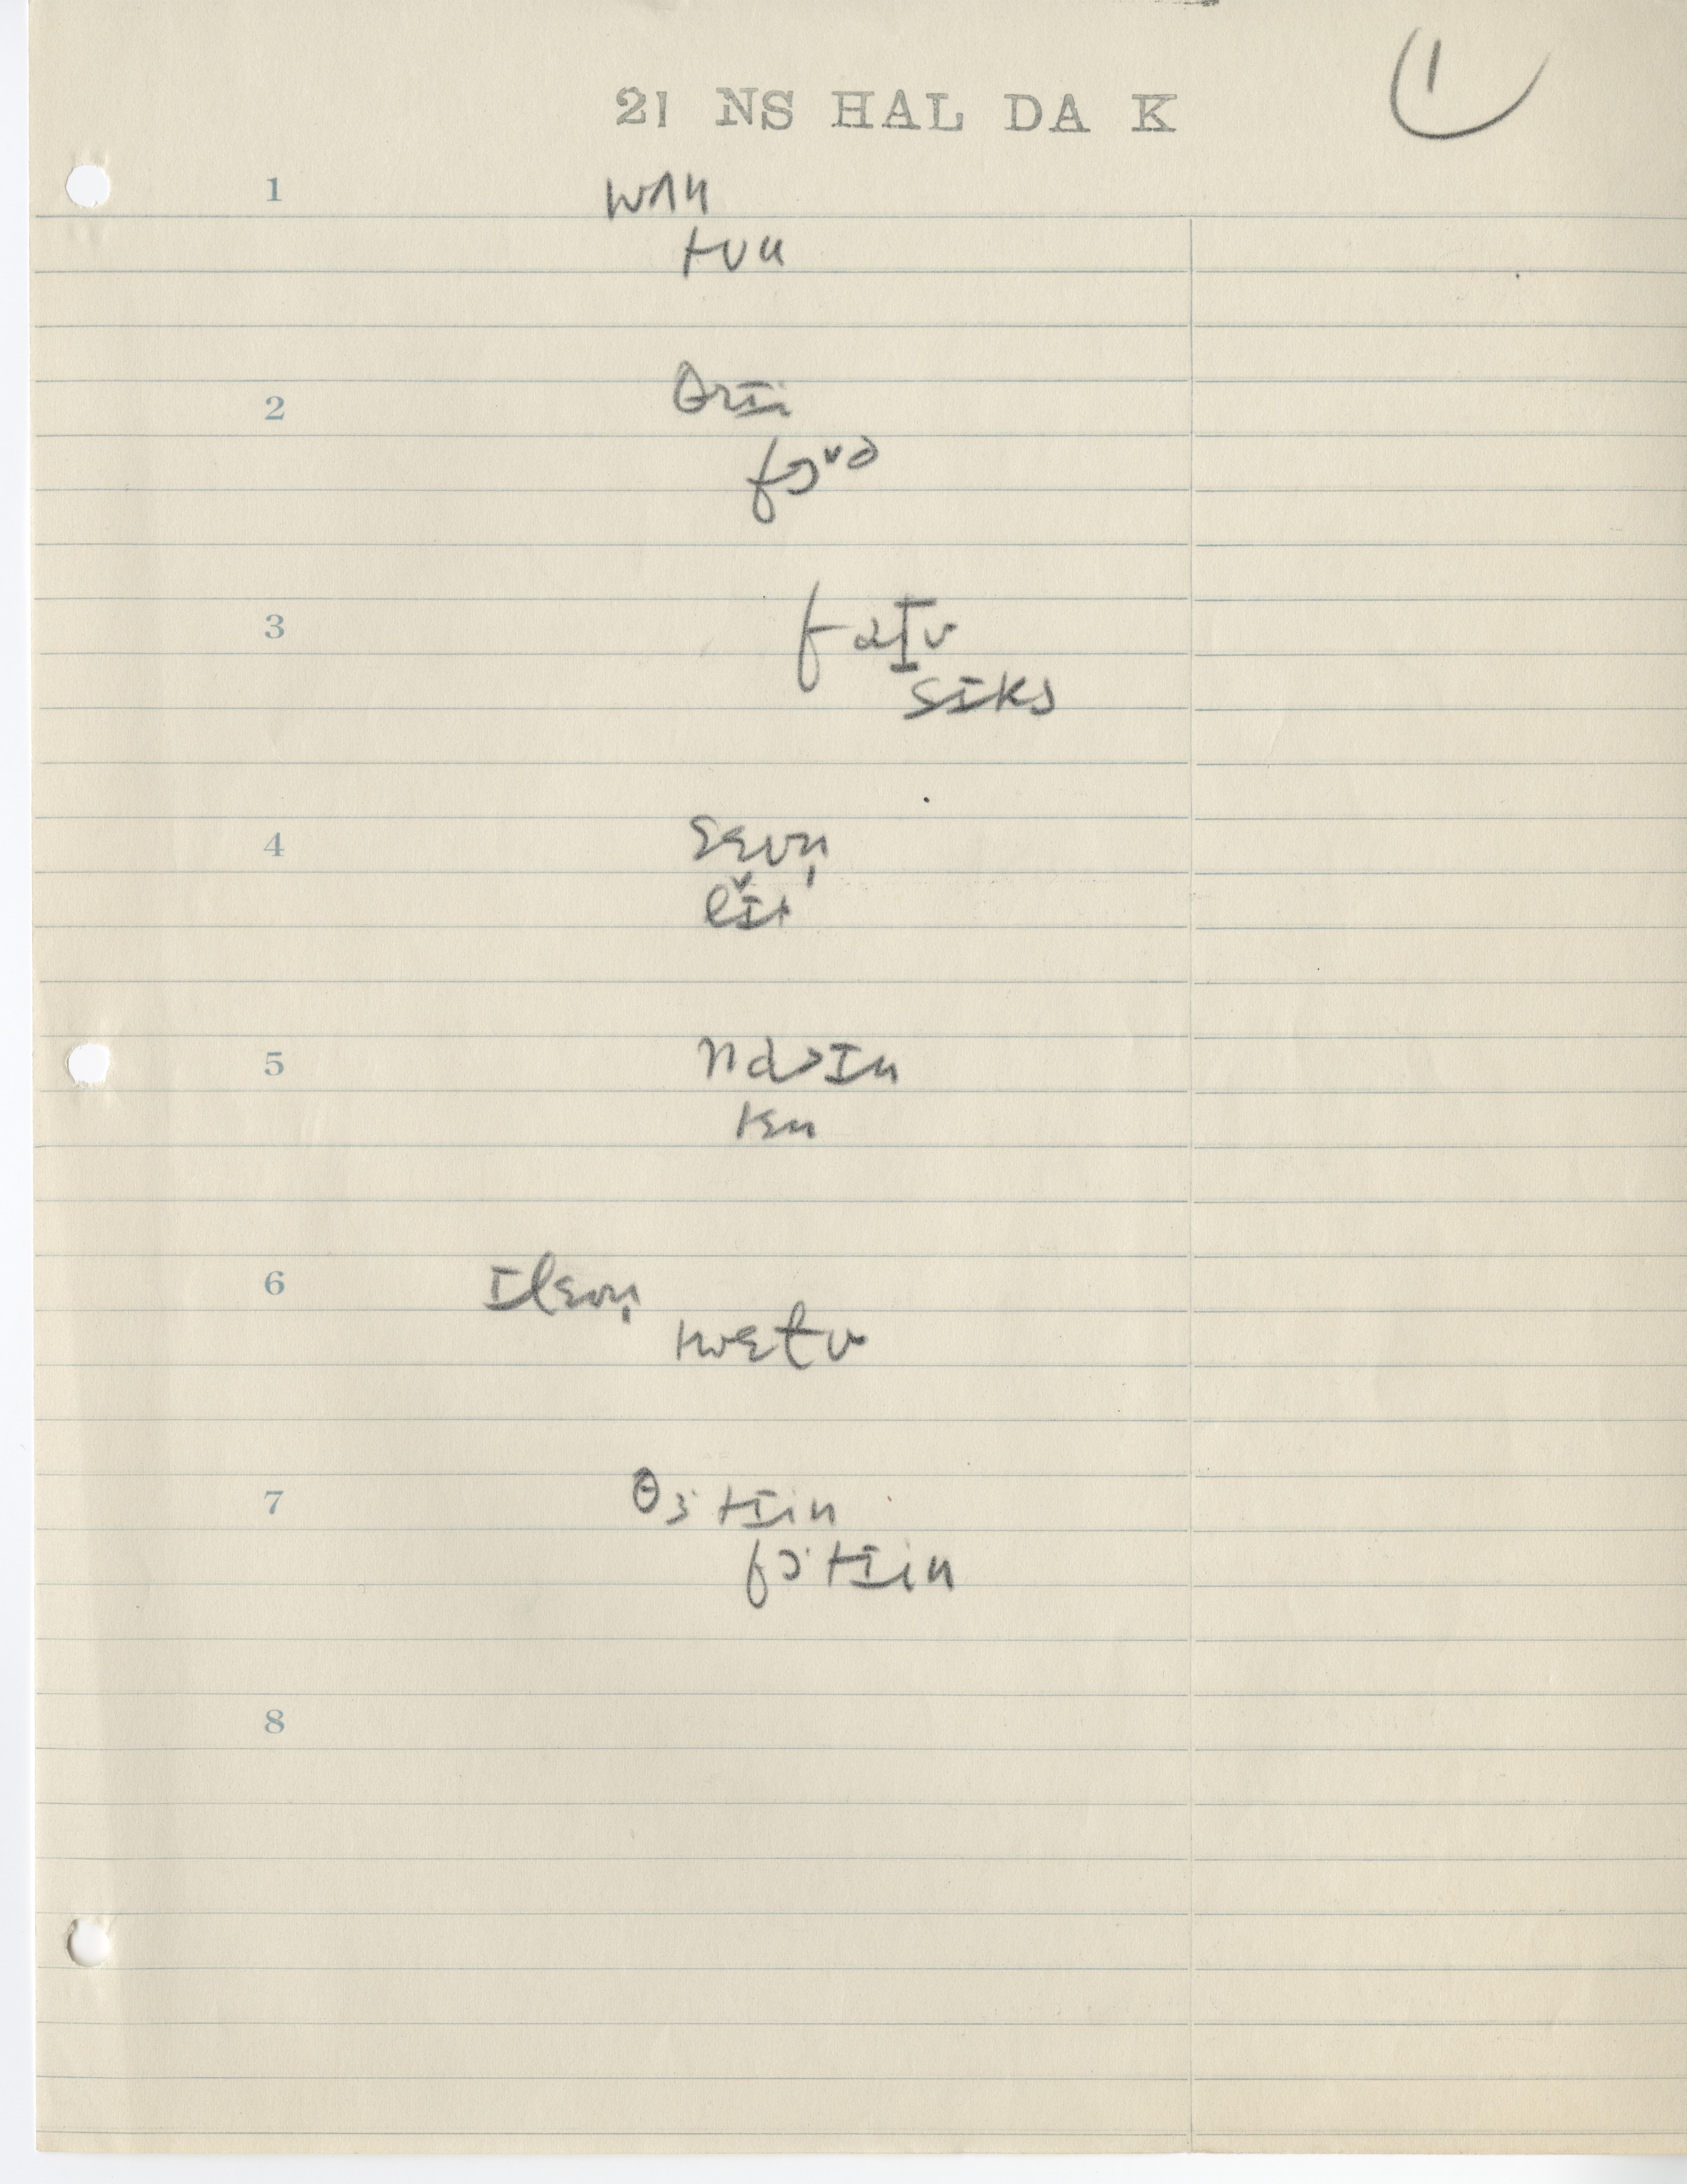 21 NS HAL DA K
1
1 wʌn
tʊu
2 θrɪi
fɔᵛə
3 faɪv
sɪks
4 sɛvn̩
eɪ̌t
5 na>ɪn
tɛn
6 ɪlɛvn̩
twɛɫv
7 θɜ˙tɪin
fɔ˙tɪin
8